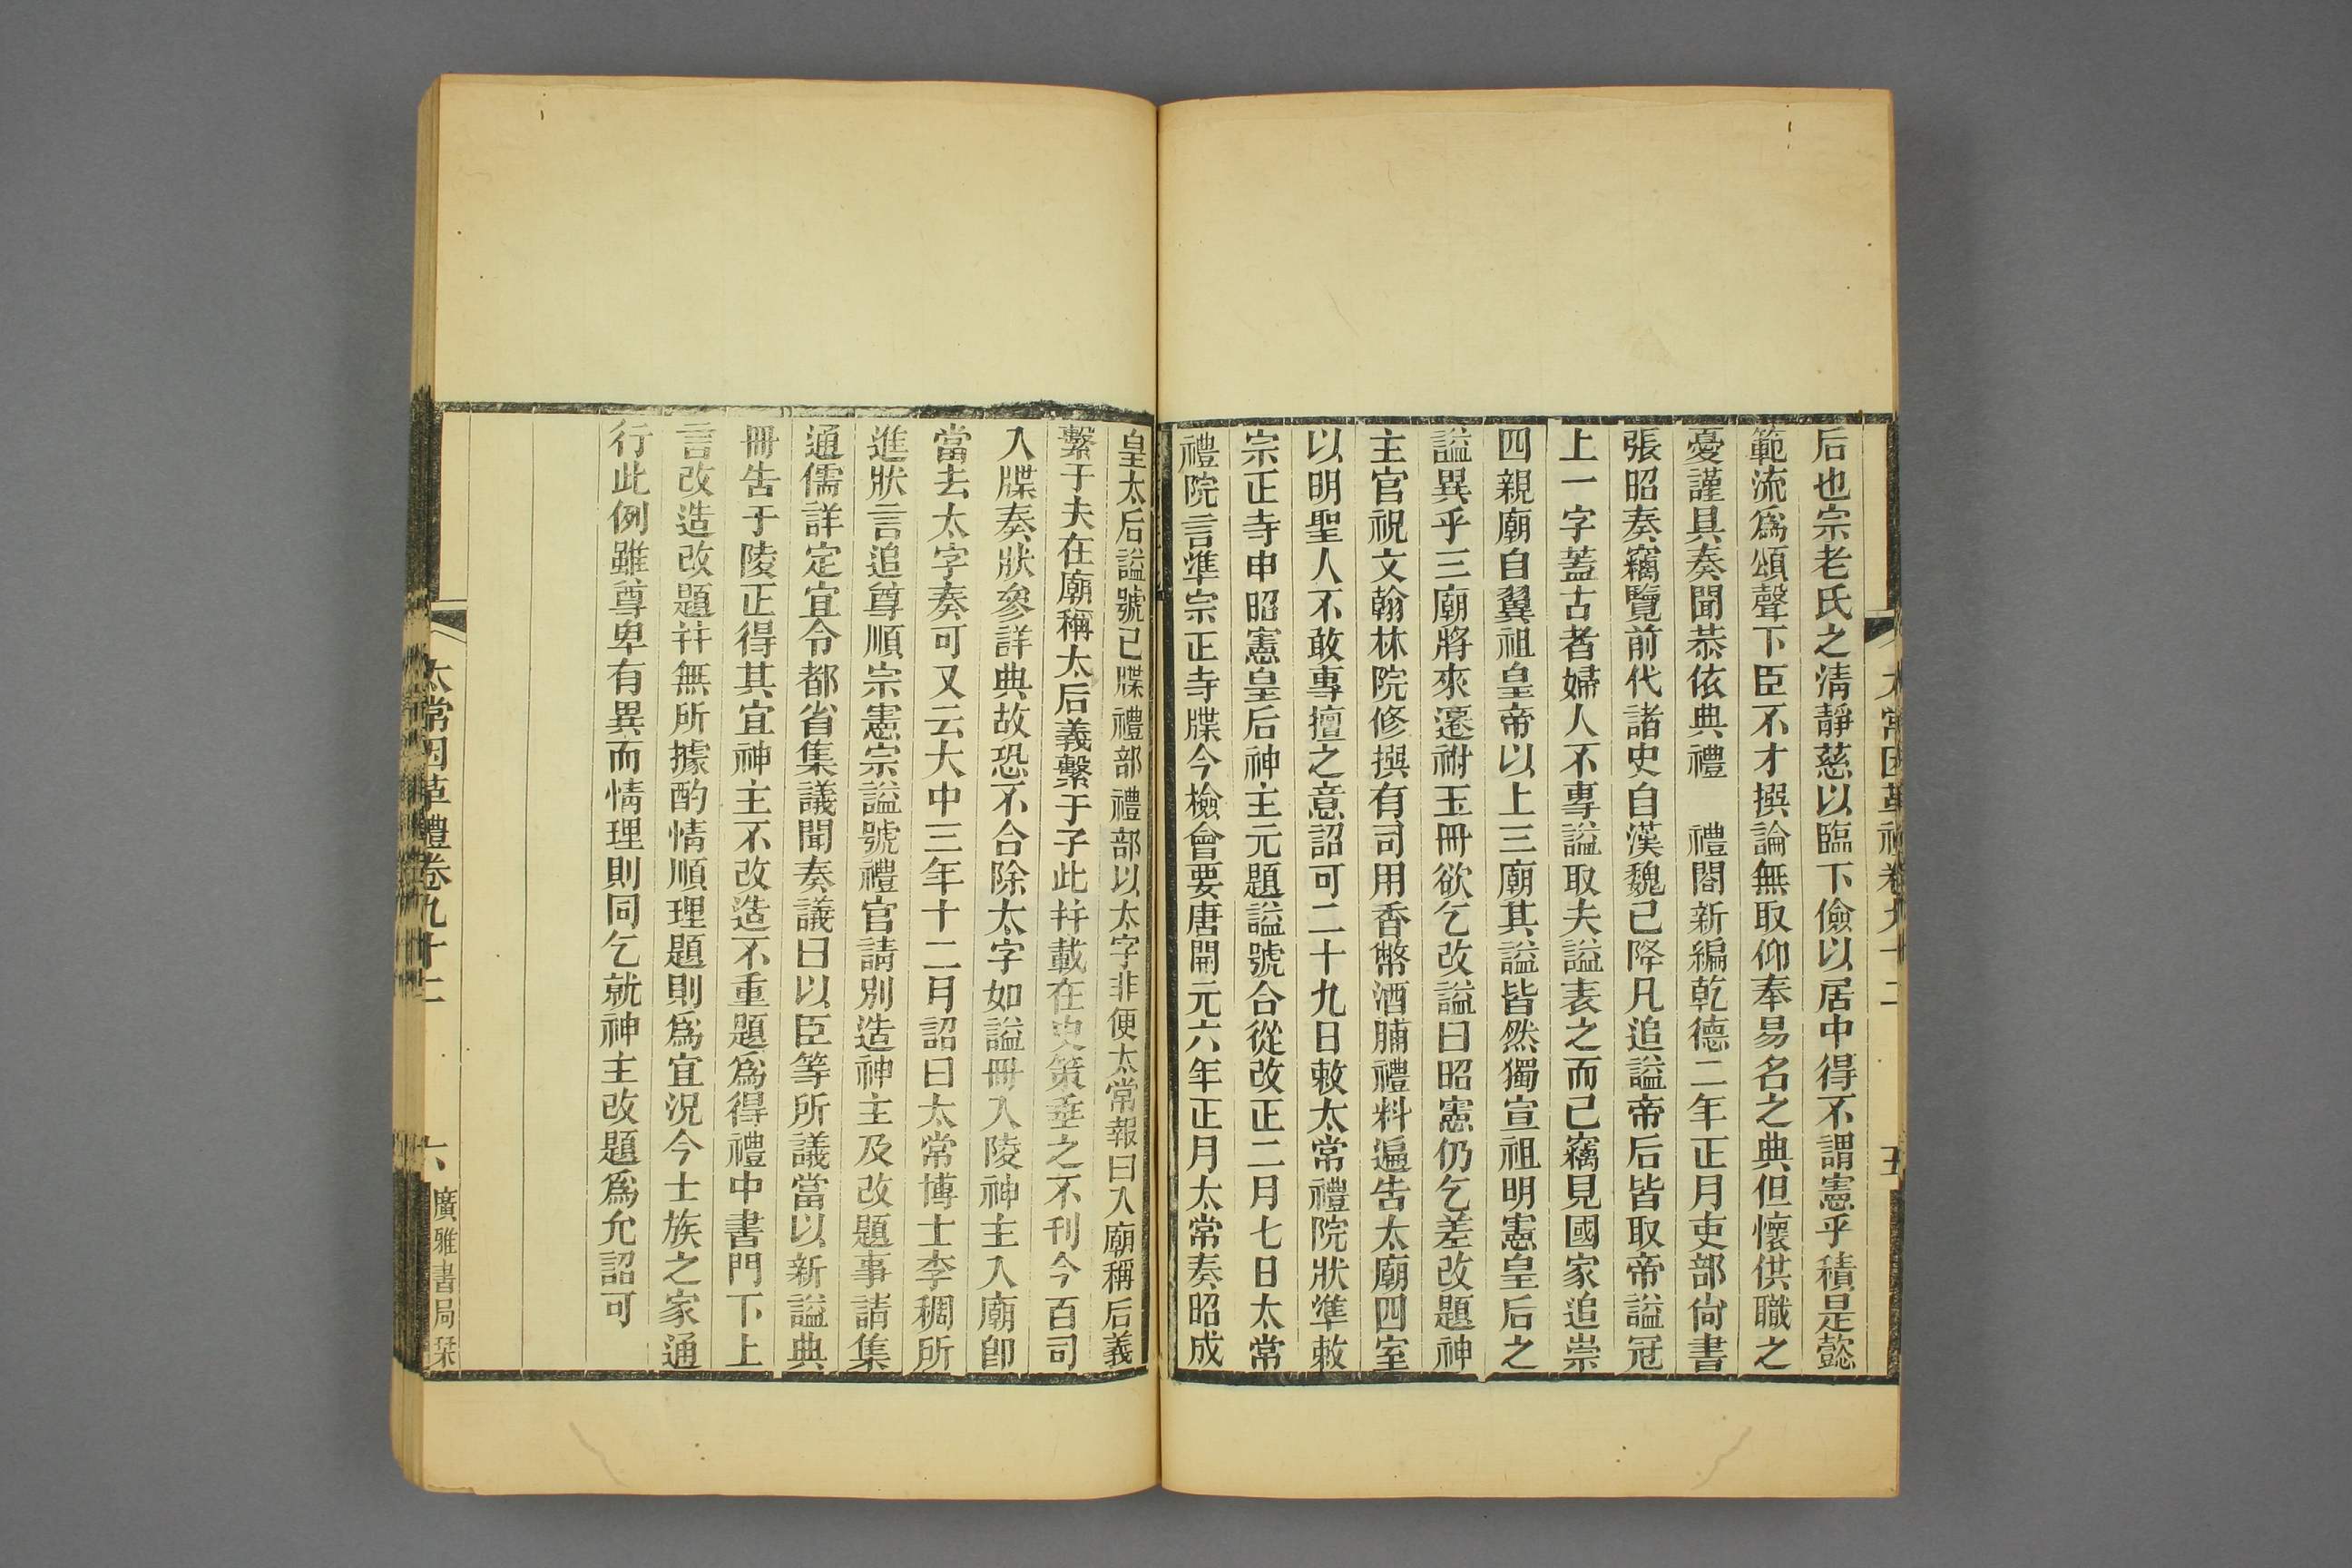 太常因革禮卷九十二 五
后也宗老氏之清靜慈以臨下儉以居中得不謂憲乎積是懿
範流爲頌聲下臣不才撰論無取仰奉易名之典但懷供職之
憂謹具奏聞恭依典禮　禮閤新編乾德二年正月吏部尙書
張昭奏竊覽前代諸史自漢魏已降凡追謚帝后皆取帝謚冠
上一字蓋古者婦人不專謚取夫謚表之而已竊見國家追崇
四親廟自翼祖皇帝以上三廟其謚皆然獨宣祖明憲皇后之
謚異乎三廟將來遷祔玉冊欲乞改謚曰昭憲仍乞差改題神
主官祝文翰林院修撰有司用香幣酒脯禮料遍告太廟四室
以明聖人不敢專擅之意詔可二十九日敕太常禮院狀準敕
宗正寺申昭憲皇后神主元題謚號合從改正二月七日太常
禮院言準宗正寺牒今檢會要唐開元六年正月太常奏昭成
皇太后謚號已牒禮部禮部以太字非便太常報曰入廟稱后義
繫于夫在廟稱太后義繫于子此并載在史策垂之不刊今百司
入牒奏狀參詳典故恐不合除太字如謚冊入陵神主入廟卽
當去太字奏可又云大中三年十二月詔曰太常博士李稠所
進狀言追尊順宗憲宗謚號禮官請別造神主及改題事請集
通儒詳定宜令都省集議聞奏議曰以臣等所議當以新謚典
冊告于陵正得其宜神主不改造不重題爲得禮中書門下上
言改造改題并無所據酌情順理題則爲宜況今士族之家通
行此例雖尊卑有異而情理則同乞就神主改題爲允詔可
太常因革禮卷九十二 六 廣雅書局栞